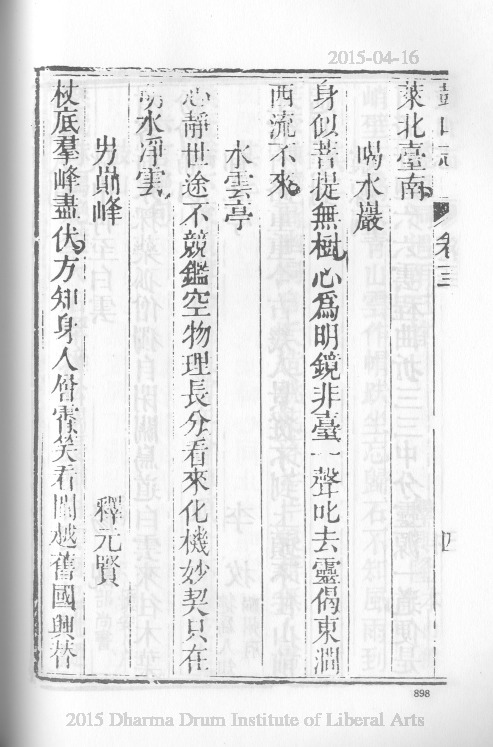 2015-04-16
鼓山志 卷三
萊北臺南
喝水巖
身似菩提無樹心為明鏡非臺一聲叱去靈偈東澗
西流不來
水雲亭
心靜世途不競鑑空物理長分看來化機妙契只在
水浮雲
屴崱峰 釋元賢
杖底羣峰盡伏方知身入層霄笑看閩越舊國興替
898
2015 Dharma Drum Institute of Liberal Arts